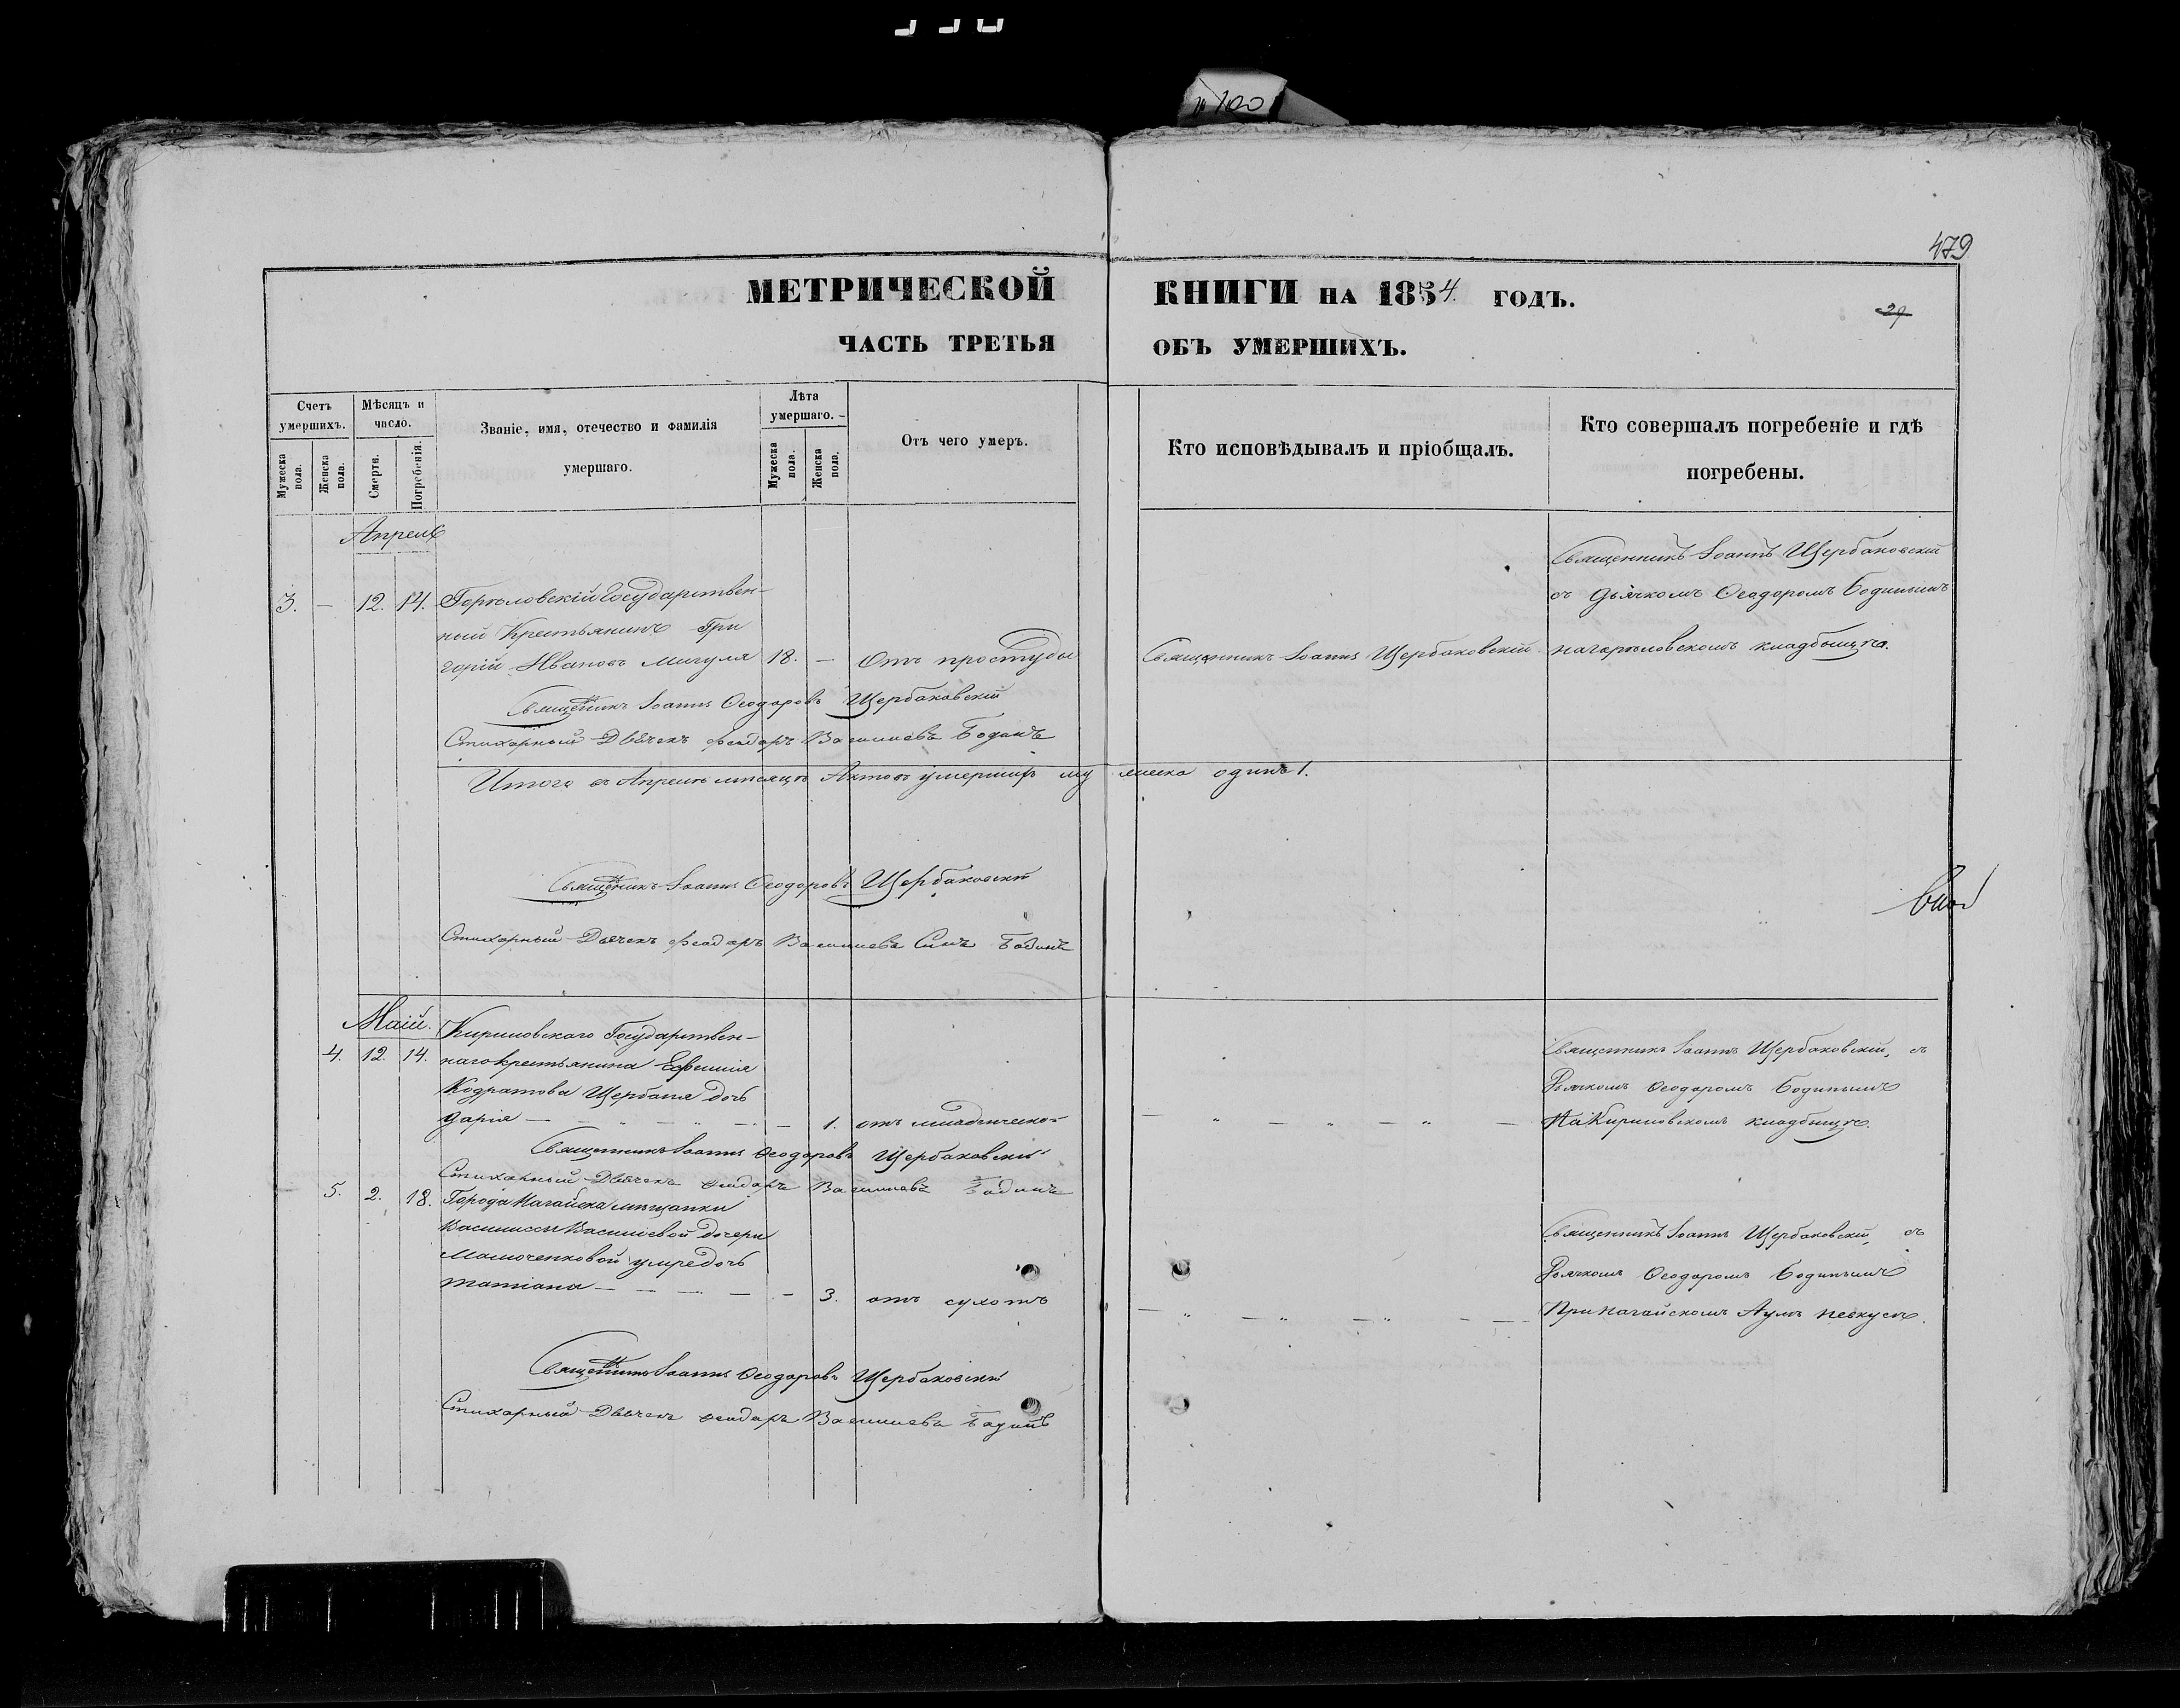 № 100
479
МЕТРИЧЕСКОЙ КНИГИ НА 1854. ГОДЪ.
29
ЧАСТЬ ТРЕТЬЯ ОБЪ УМЕРШИХЪ.
Счетъ умершихъ.
Мужеска пола.
Женска пола.
Мѣсяцъ и число.
Смерти.
Погребенія.
Званіе, имя, отечество и фамилія
умершаго.
Лѣта умершаго.
Мужеска пола.
Женска пола.
Отъ чего умеръ.
Кто исповѣдывалъ и пріобщалъ.
Кто совершалъ погребеніе и гдѣ
погребены.
Апрель
3. — 12. 14. Горѣловскій Государствен-
ный Крестьянинъ Гри
горій Ивановъ Мигуля 18. — Отъ простуды
Священникъ Іоаннъ Щербаковскій
Священникъ Іоаннъ Щербаковскій
съ Дьячкомъ Ѳеодоромъ Бодинымъ
на Горѣловскомъ кладбищѣ.
Священникъ Іоаннъ Ѳеодоровъ Щербаковскій
Стихарный Дьячекъ Феодоръ Васильевъ Бодинъ
Итого въ Апрелѣ мѣсяцѣ Актовъ умершихъ му жеска одинъ 1.
Священникъ Іоаннъ Ѳеодоровъ Щербаковскій
Стихарный Дьячекъ Феодоръ Васильевъ Сынъ Бодинъ
Маій.
4. 12. 14. Кириловскаго Государствен-
наго крестьянина Ефимія
Кодратова Щербаня дочь
Дарія — 1. отъ младенческой
Священникъ Іоаннъ Щербаковскій, съ
Дьячкомъ Ѳеодоромъ Бодинымъ
На Кириловскомъ кладбищѣ.
Священникъ Іоаннъ Ѳеодоровъ Щербаковскій
Стихарный Дьячекъ Феодоръ Васильевъ Бодинъ
5. 2. 18. Города Нагайска мѣщанки
Василиссы Васильевой дочери
дочь
Татіана — 3. отъ сухотъ
Священникъ Іоаннъ Щербаковскій, съ
Дьячкомъ Ѳеодоромъ Бодинымъ
При Нагайскомъ Аулѣ
Священникъ Іоаннъ Ѳеодоровъ Щербаковскій
Стихарный Дьячекъ Феодоръ Васильевъ Бодинъ